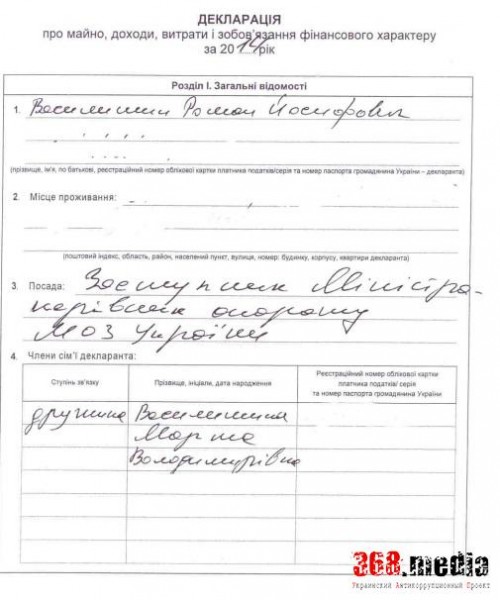 ДЕКЛАРАЦІЯ
про майно, доходи, витрати і зобов'язання фінансового характеру
за 2014 рік
Розділ І. Загальні відомості
1. Василишин Роман Йосифович
(прізвище, ім'я, по батькові, реєстраційний номер облікової картки платника податків/серія та номер паспорта громадянина України – декларанта)
2. Місце проживання:
(поштовий індекс, область, район, населений пункт, вулиця, номер: будинку, корпусу, квартири декларанта)
3. Посада: Заступник Міністра-
керівник апарату
МОЗ України
4. Члени сім'ї декларанта:
Ступінь зв'язку
Прізвище, ініціали, дата народження
Реєстраційний номер облікової картки
платника податків/ серія
та номер паспорта громадянина України
дружина Василишина
Марта
Володимирівна
368.media
Украинский Антикоррупционный Проект